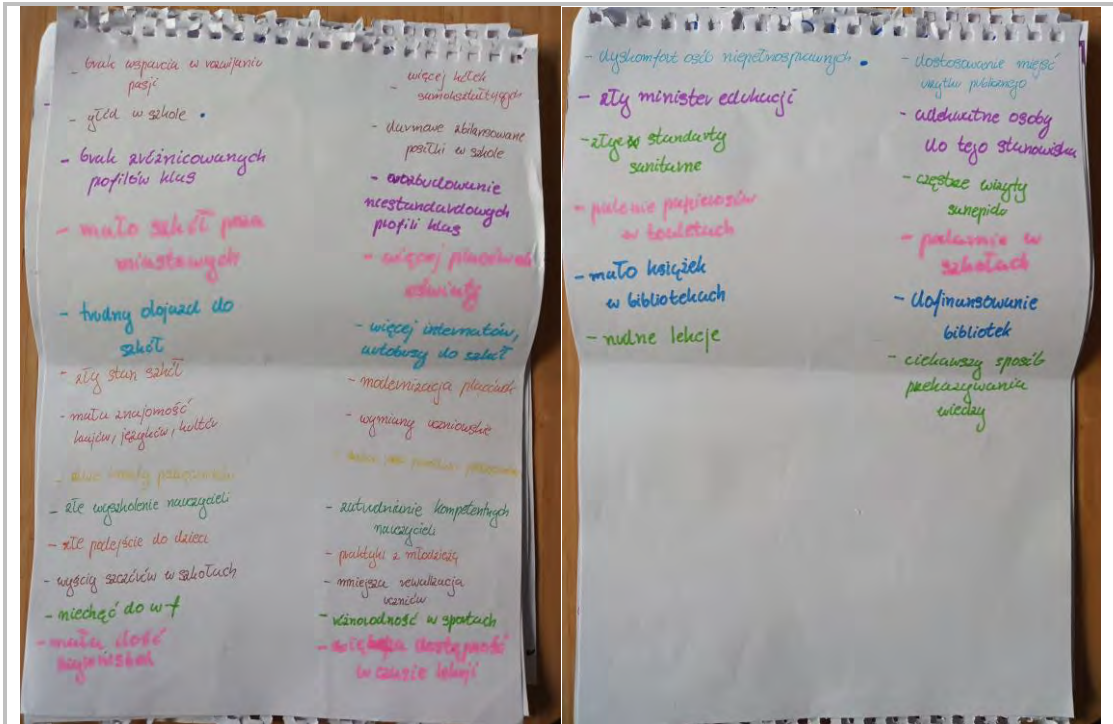 - brak wsparcia w rozwijaniu
pasji
- głód w szkole •
- brak zróżnicowanych
profilów klas
- mało szkół poza
miastowych
- trudny dojazd do
szkół
- zły stan szkół
- mała znajomość
krajów, języków, kultur
- złe wyszkolenie nauczycieli
- złe podejście do dzieci
- wyścig szczurów w szkołach
- niechęć do w-f
- mała ilość
- więcej kółek
samokształcących
- darmowe zbilansowane
posiłki w szkole
- rozbudowanie
niestandardowych
profili klas
- więcej placówek
oświaty
- więcej internatów,
autobusy do szkół
- modernizacja placówek
- wymiany uczniowskie
- zatrudnianie kompetentnych
nauczycieli
- praktyki z młodzieżą
- mniejsza rewalizacja
uczniów
- różnorodność w sportach
- większa dostępność
w czasie lekcji
- dyskomfort osób niepełnosprawnych •
- zły minister edukacji
- złe standarty
sanitarne
- palenie papierosów
w toaletach
- mało książek
w bibliotekach
- nudne lekcje
- dostosowanie miejsc
użytku publicznego
- adekwatne osoby
do tego stanowiska
- częstrze wizyty
sanepidu
- palarnie w
szkołach
- dofinansowanie
bibliotek
- ciekawszy sposób
przekazywania
wiedzy